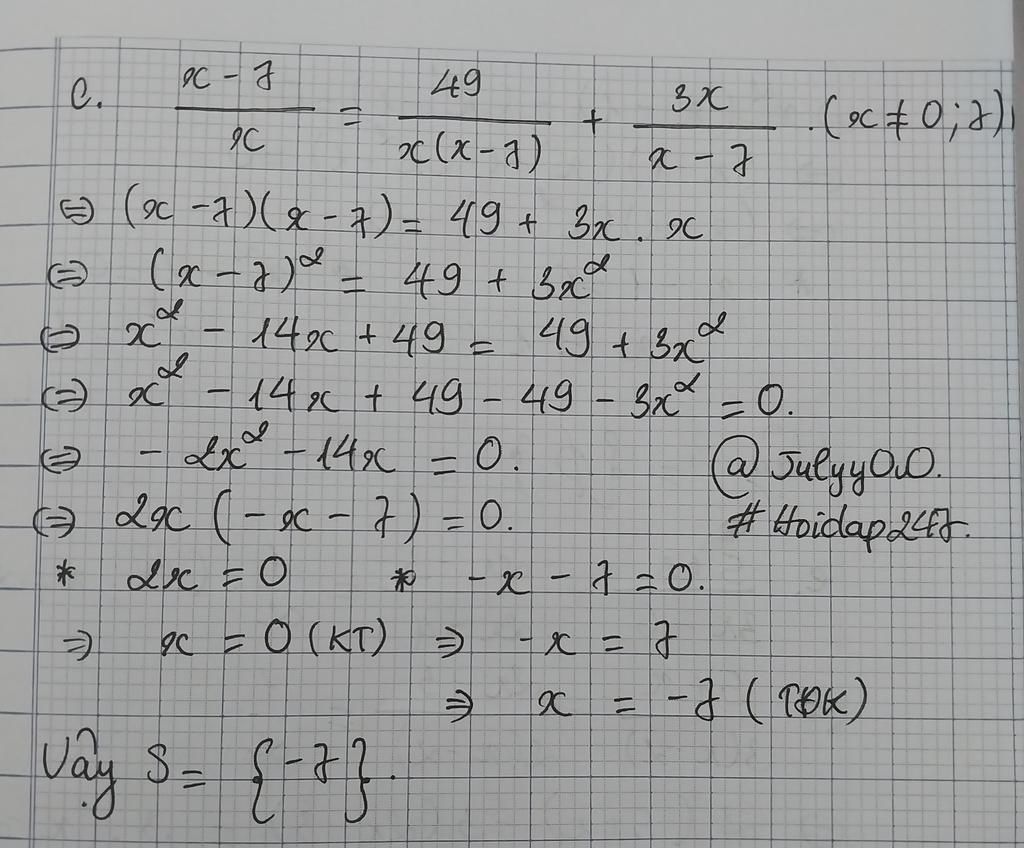 c. \frac{x-7}{x} = \frac{49}{x(x-7)} + \frac{3x}{x-7} . (x ≠ 0; 7)
⇔ (x - 7)(x - 7) = 49 + 3x . x
⇔ (x - 7)² = 49 + 3x²
⇔ x² - 14x + 49 = 49 + 3x²
⇔ x² - 14x + 49 - 49 - 3x² = 0.
⇔ - 2x² - 14x = 0. @JulyyO.O.
⇔ 2x (-x - 7) = 0. #Hoidap247.
* 2x = 0 * -x - 7 = 0.
⇒ x = 0 (KT) ⇒ -x = 7
⇒ x = -7 (TĐK)
Vậy S = {-7}.